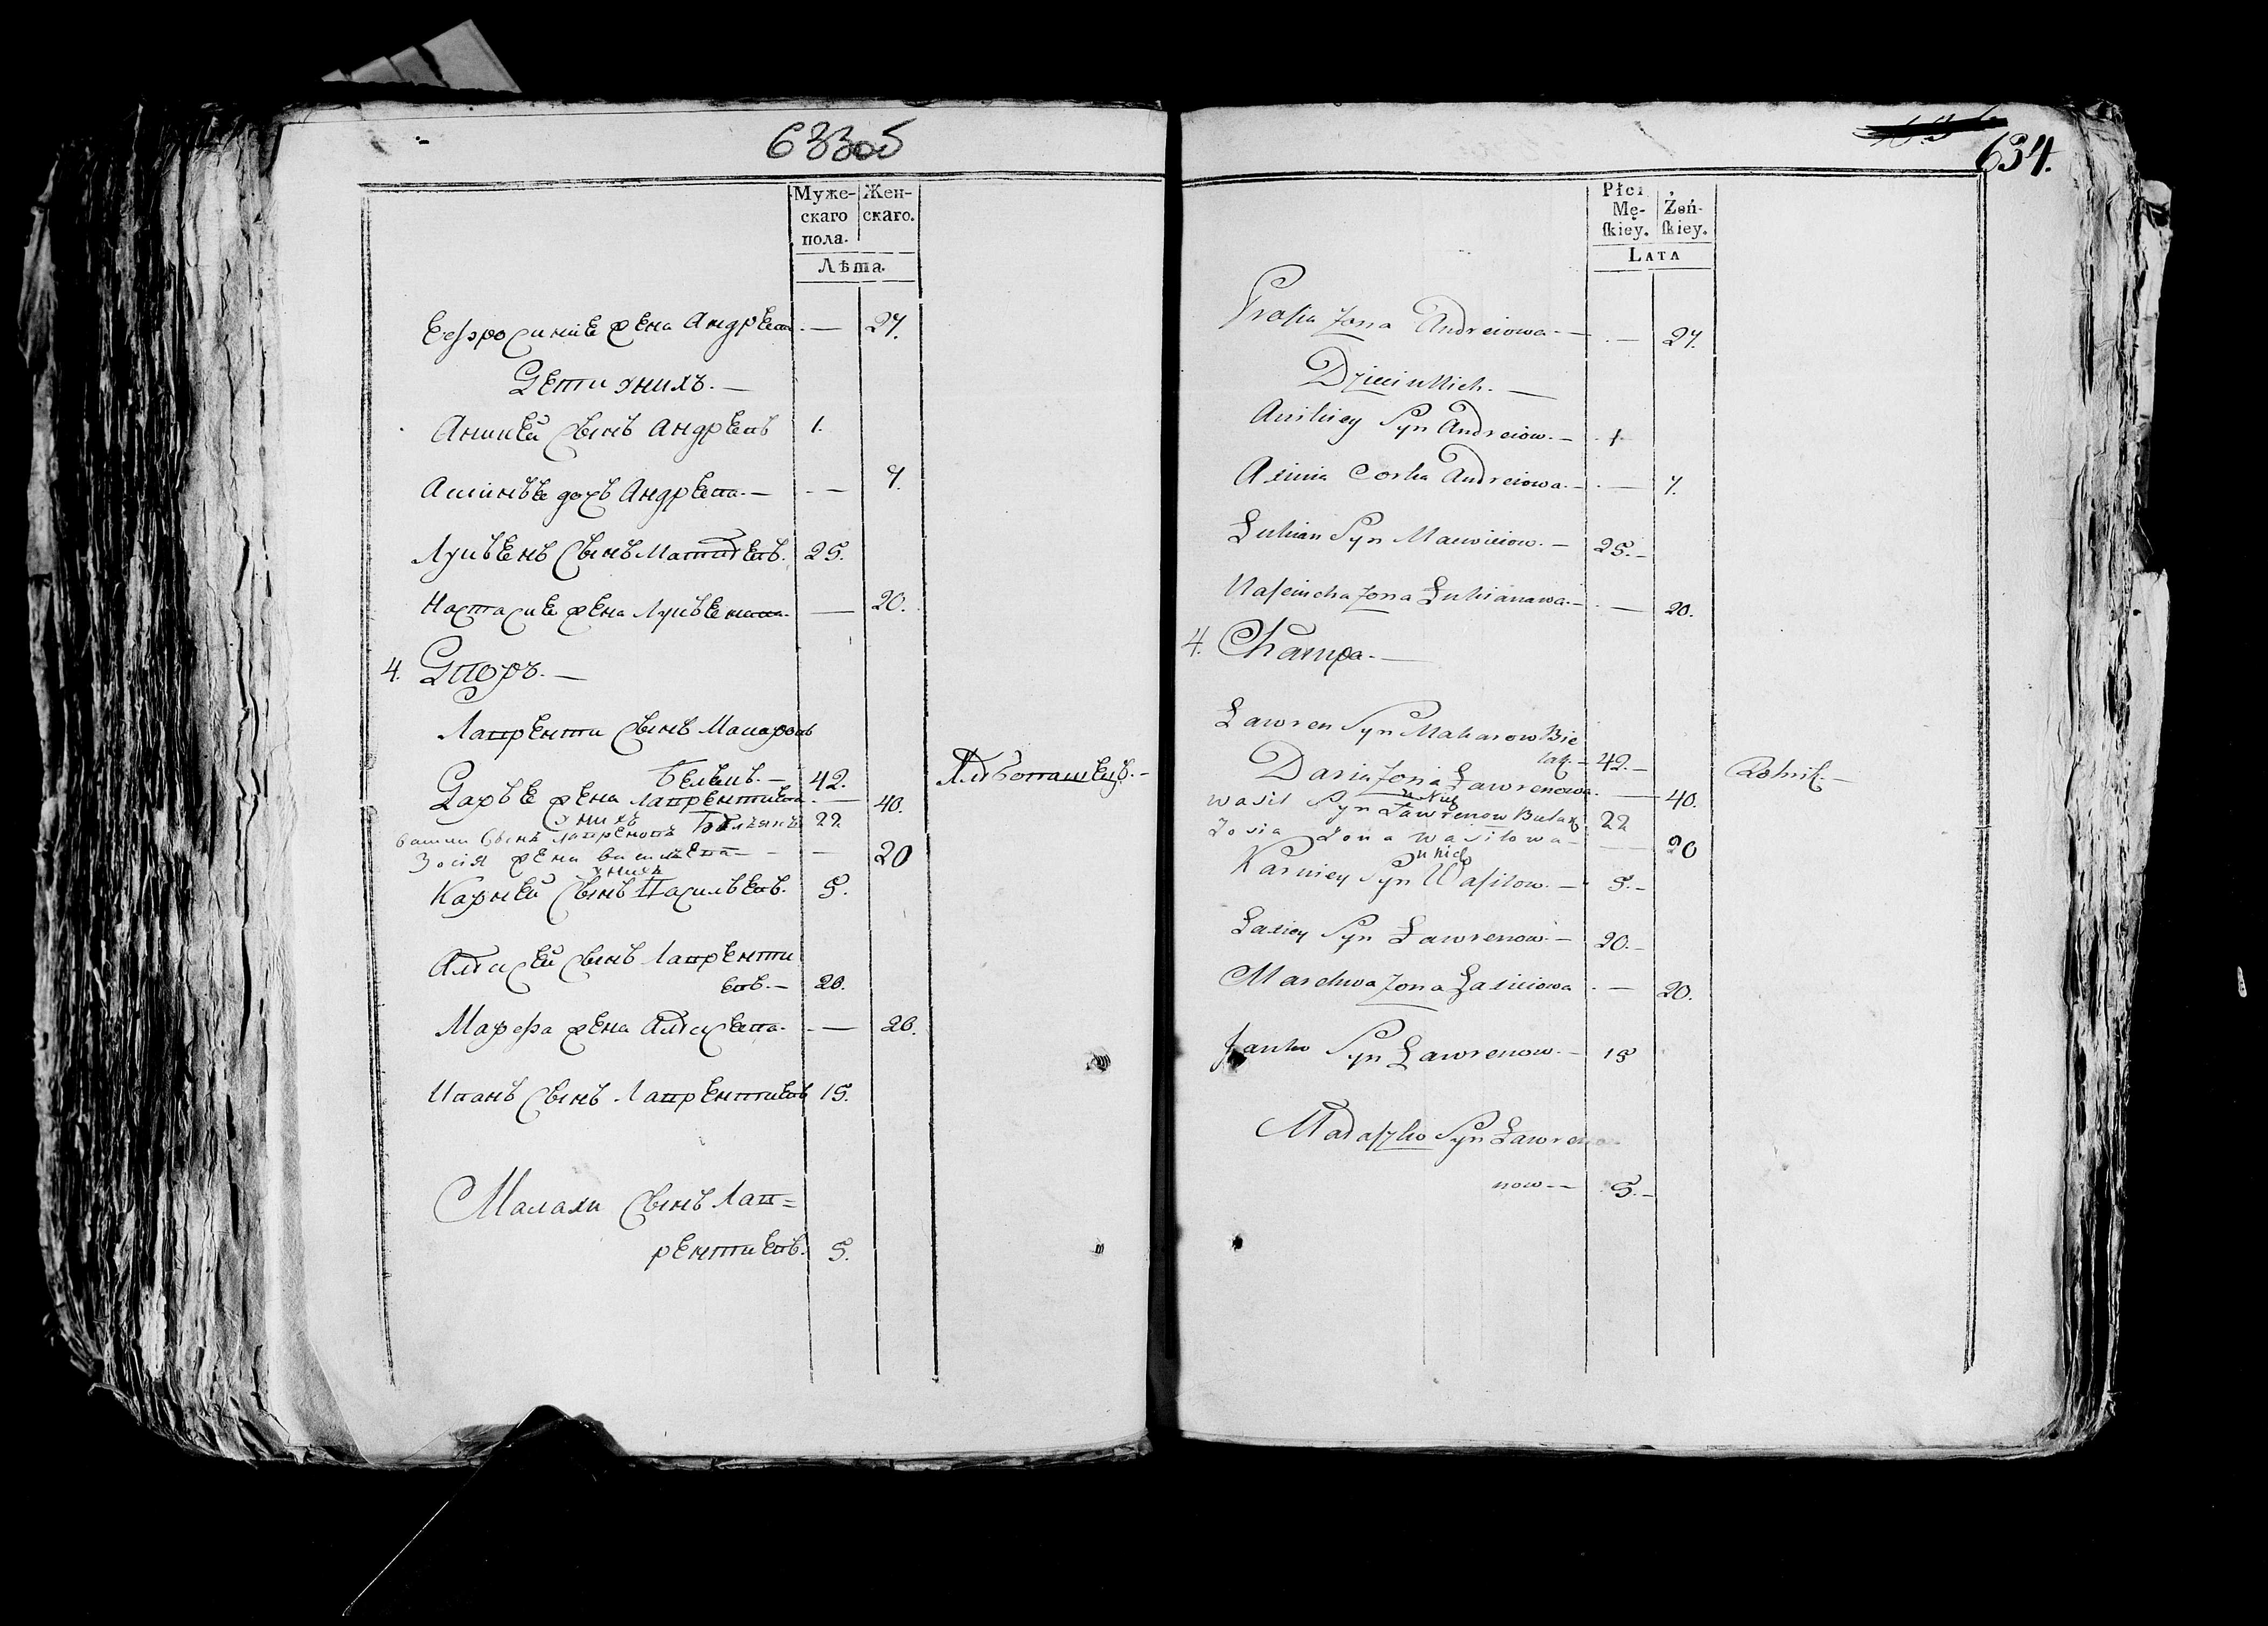 633об
Муже-
скаго
пола.
Жен-
скаго.
Лѣта.
Ефросиніе жена Андреева. — 27.
Дети унихъ. —
Аникей сынъ Андреевъ 1.
Аксинъе дочъ Андреева. — 7.
Лукъенъ сынъ Матвеевъ. 25.
Настасие жена Лукъенова. — 20.
4. Дворъ. —
Лаврентий сынъ Макаровъ
Белякъ. — 42.
Дарье жена Лаврентиева — 40.
унихъ
василий сынъ Лавреновъ Белякъ 22
Зосія жена василева — 20
унихъ
Карней сынъ Васильевъ. 5.
Алексей сынъ Лавренти
евъ. — 20.
Марфа жена Алексеева. — 20.
Иванъ сынъ Лаврентиевъ 15.
Малахи сынъ Лав=
рентиевъ. 5.
Хлебопашецъ. —
634.
Płci
Mę-
ſkiey.
Żeń-
ſkiey.
Lata
Prosia żona Andreiowa. — 27.
Dzieci u Nich. —
Anikiey Syn Andreiow. — 1
Axinia Corka Andreiowa. — 7.
Łukian Syn Macwieiow. — 25. —
Nasciucha żona Łukianawa. — 20.
4. Chałupa. —
Ławren Syn Makarow Bie
lak. — 42. —
Daria żona Ławrenowa. — 40.
u Nich
Wasil Syn Ławrenow Bielak 22
Zosia Żona Wasilowa — 20
u nich
Karniey Syn Wasilow. — 5. —
Łaxiey Syn Ławrenow. — 20. —
Marchwa żona Łaxieiowa — 20.
Janko Syn Ławrenow. — 15
Małaszko Syn Ławre
now — 5. —
Rolnik. —